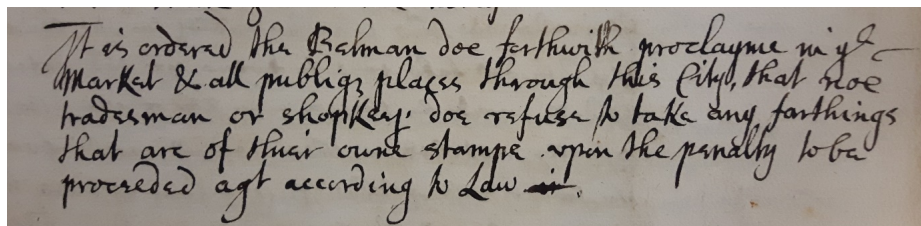 It is ordered the Belman doe forthwith proclayme in ye
Market & all publiq places through this City, that noe
tradesman or shopkep. doe refuse to take any farthings
that are of thier owne stampe vpon the penalty to be
proceeded agt according to Law